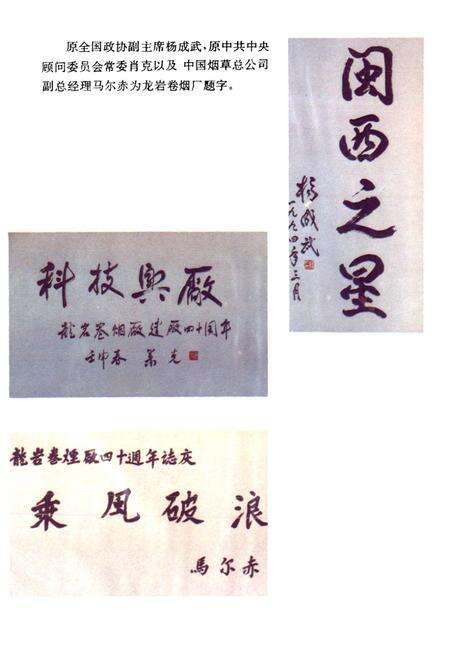 原全国政协副主席杨成武，原中共中央
顾问委员会常委肖克以及 中国烟草总公司
副总经理马尔赤为龙岩卷烟厂题字。
闽西之星
杨成武
一九九四年三月
科技興廠
龍岩卷烟廠建廠四十周年
壬申春 萧克
龍岩卷煙廠四十週年誌庆
乘风破浪
馬尔赤